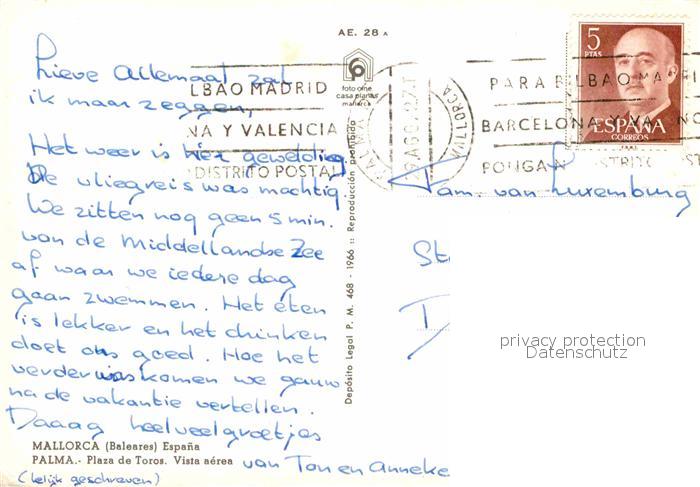 AE. 28 A
Lieve Allemaal zal
ik maar zeggen,
Het weer is hier geweldig
De vliegreis was machtig.
We zitten nog geen 5 min.
van de Middellandse Zee
af waar we iedere dag
gaan zwemmen. Het eten
is lekker en het drinken
doet ons goed. Hoe het
verder was komen we gauw
na de vakantie vertellen.
Daaag heel veel groetjes
van Ton en Anneke
(lelijk geschreven)
MALLORCA (Baleares) España
PALMA.- Plaza de Toros. Vista aérea
foto ome
casa planas
mallorca
Depósito Legal P. M. 468 - 1966 :: Reproducción prohibida
LBAO MADRID
NA Y VALENCIA
DISTRITO POSTAL
PARA BILBAO MA
BARCELONA Y VA
PONGA N DISTRITO
5
PTAS
ESPAÑA
CORREOS
Fam. van Luxemburg
St
privacy protection
Datenschutz